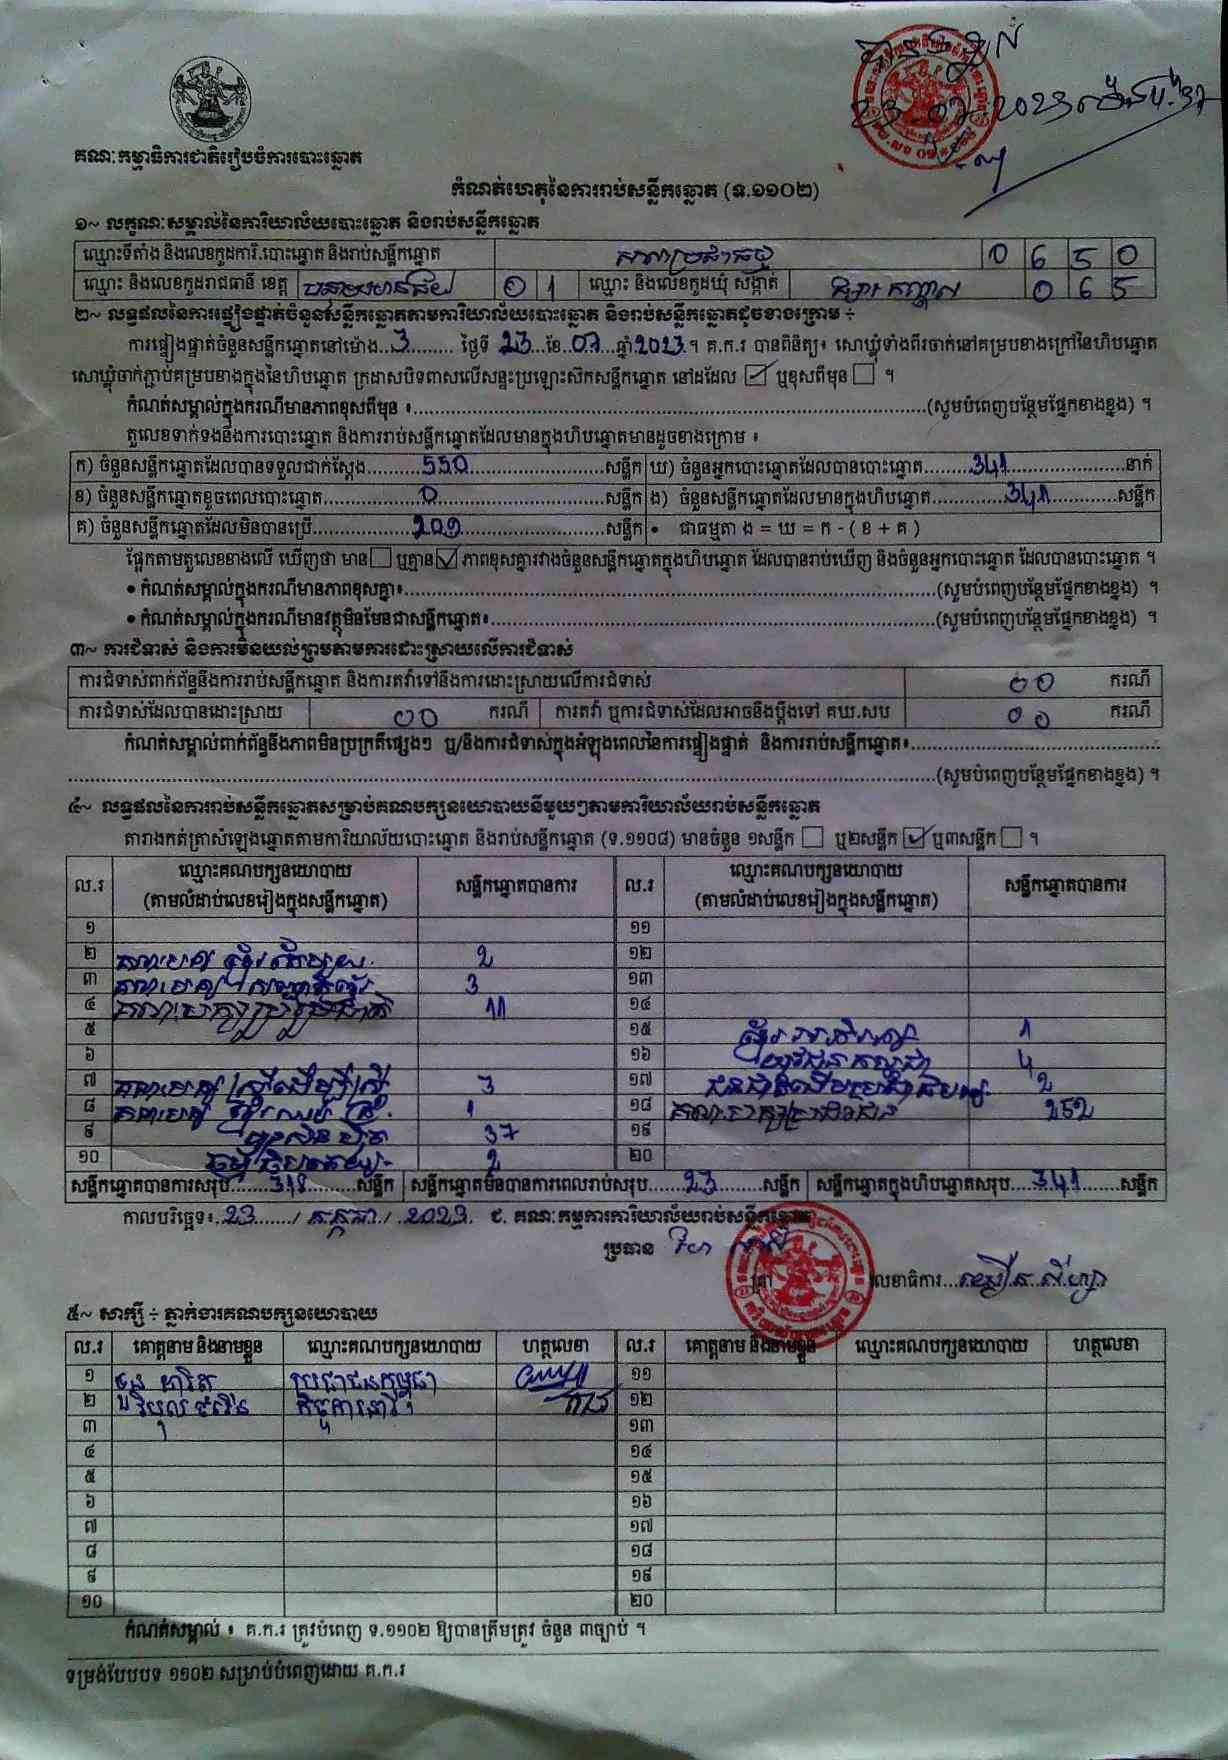 23.07.2023
គណៈកម្មាធិការជាតិរៀបចំការបោះឆ្នោត
កំណត់ហេតុនៃការរាប់សន្លឹកឆ្នោត (ទ.១១០២)
១~ លក្ខណៈសម្គាល់នៃការិយាល័យបោះឆ្នោត និងរាប់សន្លឹកឆ្នោត
ឈ្មោះទីតាំង និងលេខកូដការិ.បោះឆ្នោត និងរាប់សន្លឹកឆ្នោត សាលាប្រជាធម្ម 0 6 5 0
ឈ្មោះ និងលេខកូដរាជធានី ខេត្ត បន្ទាយមានជ័យ 0 1 ឈ្មោះ និងលេខកូដឃុំ សង្កាត់ 0 6 5
២~ លទ្ធផលនៃការផ្ទៀងផ្ទាត់ចំនួនសន្លឹកឆ្នោតតាមការិយាល័យបោះឆ្នោត និងរាប់សន្លឹកឆ្នោតដូចខាងក្រោម ÷
ការផ្ទៀងផ្ទាត់ចំនួនសន្លឹកឆ្នោតនៅម៉ោង...3......... ថ្ងៃទី 23...ខែ..07..ឆ្នាំ2023.។ គ.ក.រ បានពិនិត្យ៖ សោឃ្លុំទាំងពីរចាក់នៅគម្របខាងក្រៅនៃហិបឆ្នោត
សោឃ្លុំចាក់ភ្ជាប់គម្របខាងក្នុងនៃហិបឆ្នោត ក្រដាសបិទពាសលើសន្ទះប្រឡោះស៊កសន្លឹកឆ្នោត នៅដដែល ☑ ឬខុសពីមុន ☐ ។
កំណត់សម្គាល់ក្នុងករណីមានភាពខុសពីមុន ៖..........(សូមបំពេញបន្ថែមផ្នែកខាងខ្នង) ។
តួលេខទាក់ទងនឹងការបោះឆ្នោត និងការរាប់សន្លឹកឆ្នោតដែលមានក្នុងហិបឆ្នោតមានដូចខាងក្រោម ៖
ក) ចំនួនសន្លឹកឆ្នោតដែលបានទទួលជាក់ស្តែង..........550..........សន្លឹក ឃ) ចំនួនអ្នកបោះឆ្នោតដែលបានបោះឆ្នោត........341..........នាក់
ខ) ចំនួនសន្លឹកឆ្នោតខូចពេលបោះឆ្នោត..........0..........សន្លឹក ង) ចំនួនសន្លឹកឆ្នោតដែលមានក្នុងហិបឆ្នោត..........341..........សន្លឹក
គ) ចំនួនសន្លឹកឆ្នោតដែលមិនបានប្រើ..........209..........សន្លឹក • ជាធម្មតា ង = ឃ = ក - ( ខ + គ )
ផ្អែកតាមតួលេខខាងលើ ឃើញថា មាន ☐ ឬគ្មាន ☑ ភាពខុសគ្នារវាងចំនួនសន្លឹកឆ្នោតក្នុងហិបឆ្នោត ដែលបានរាប់ឃើញ និងចំនួនអ្នកបោះឆ្នោត ដែលបានបោះឆ្នោត ។
• កំណត់សម្គាល់ក្នុងករណីមានភាពខុសគ្នា៖..........(សូមបំពេញបន្ថែមផ្នែកខាងខ្នង) ។
• កំណត់សម្គាល់ក្នុងករណីមានវត្ថុមិនមែនជាសន្លឹកឆ្នោត៖..........(សូមបំពេញបន្ថែមផ្នែកខាងខ្នង) ។
៣~ ការជំទាស់ និងការមិនយល់ព្រមតាមការដោះស្រាយលើការជំទាស់
ការជំទាស់ពាក់ព័ន្ធនឹងការរាប់សន្លឹកឆ្នោត និងការតវ៉ាទៅនឹងការដោះស្រាយលើការជំទាស់ 00 ករណី
ការជំទាស់ដែលបានដោះស្រាយ 00 ករណី ការតវ៉ា ឬការជំទាស់ដែលអាចនឹងប្តឹងទៅ គឃ.សប 00 ករណី
កំណត់សម្គាល់ពាក់ព័ន្ធនឹងភាពមិនប្រក្រតីផ្សេងៗ ឬ/និងការជំទាស់ក្នុងអំឡុងពេលនៃការផ្ទៀងផ្ទាត់ និងការរាប់សន្លឹកឆ្នោត៖..........
..........(សូមបំពេញបន្ថែមផ្នែកខាងខ្នង) ។
៤~ លទ្ធផលនៃការរាប់សន្លឹកឆ្នោតសម្រាប់គណបក្សនយោបាយនីមួយៗតាមការិយាល័យរាប់សន្លឹកឆ្នោត
តារាងកត់ត្រាសំឡេងឆ្នោតតាមការិយាល័យបោះឆ្នោត និងរាប់សន្លឹកឆ្នោត (ទ.១១០៨) មានចំនួន ១សន្លឹក ☐ ឬ២សន្លឹក ☑ ឬ៣សន្លឹក ☐ ។
ល.រ ឈ្មោះគណបក្សនយោបាយ (តាមលំដាប់លេខរៀងក្នុងសន្លឹកឆ្នោត) សន្លឹកឆ្នោតបានការ ល.រ ឈ្មោះគណបក្សនយោបាយ (តាមលំដាប់លេខរៀងក្នុងសន្លឹកឆ្នោត) សន្លឹកឆ្នោតបានការ
១ ១១
២ 2 ១២
៣ 3 ១៣
៤ 11 ១៤
៥ ១៥ 1
៦ ១៦ 4
៧ គណបក្ស ស្ត្រីដើម្បីស្ត្រី 3 ១៧ 2
៨ 1 ១៨ គណបក្សប្រជាជន 252
៩ ហ្វ៊ុនស៊ិនប៉ិច 37 ១៩
១០ ធម្មាធិបតេយ្យ 2 ២០
សន្លឹកឆ្នោតបានការសរុប........318........សន្លឹក សន្លឹកឆ្នោតមិនបានការពេលរាប់សរុប......23......សន្លឹក សន្លឹកឆ្នោតក្នុងហិបឆ្នោតសរុប...341.......សន្លឹក
កាលបរិច្ឆេទ៖..23....../ កក្កដា /..2023. ជ. គណៈកម្មការការិយាល័យរាប់សន្លឹកឆ្នោត
ប្រធាន លេខាធិការ
៥~ សាក្សី ÷ ភ្នាក់ងារគណបក្សនយោបាយ
ល.រ គោត្តនាម និងនាមខ្លួន ឈ្មោះគណបក្សនយោបាយ ហត្ថលេខា ល.រ គោត្តនាម និងនាមខ្លួន ឈ្មោះគណបក្សនយោបាយ ហត្ថលេខា
១ ប្រជាជនកម្ពុជា ១១
២ ១២
៣ ១៣
៤ ១៤
៥ ១៥
៦ ១៦
៧ ១៧
៨ ១៨
៩ ១៩
១០ ២០
កំណត់សម្គាល់ ៖ គ.ក.រ ត្រូវបំពេញ ទ.១១០២ ឱ្យបានត្រឹមត្រូវ ចំនួន ៣ច្បាប់ ។
ទម្រង់បែបបទ ១១០២ សម្រាប់បំពេញដោយ គ.ក.រ